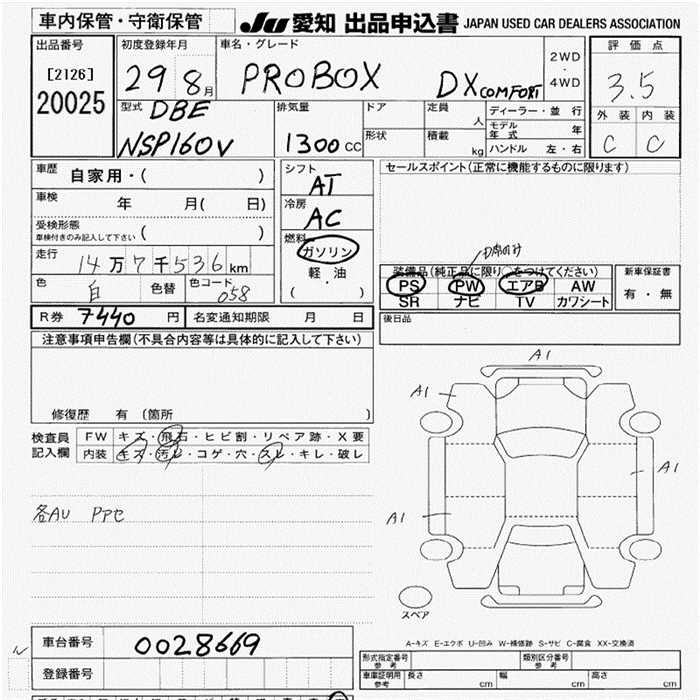 車内保管・守衛保管
JU 愛知 出品申込書 JAPAN USED CAR DEALERS ASSOCIATION
出品番号
[2126]
20025
初度登録年月
29 8月
車名・グレード
PROBOX DX COMFORT
2WD
・
4WD
評価点
3.5
外装 内装
C C
型式
DBE
NSP160V
排気量
1300 CC
ドア
形状
定員
人
積載
kg
ディーラー・並行
モデル年式 年
ハンドル 左・右
車歴
自家用・( )
車検
年 月( 日)
受検形態
車検付きのみ記入して下さい ( )
走行
14万7千536km
色
白
色替
色コード
058
シフト
AT
冷房
AC
燃料
ガソリン
軽油
・
( )
セールスポイント(正常に機能するものに限ります)
装備品(純正品に限り○をつけてください)
PS PW エアB AW
SR ナビ TV カワシート
新車保証書
有・無
R券 7440 円
名変通知期限 月 日
後日品
注意事項申告欄(不具合内容等は具体的に記入して下さい)
修復歴 有 (箇所 )
検査員
記入欄
FW キズ・飛石・ヒビ割・リペア跡・X要
内装 キズ・汚レ・コゲ・穴・スレ・キレ・破レ
各AU PPセ
A1
A1
A1
A1
スペア
A-キズ E-エクボ U-凹み W-補修跡 S-サビ C-腐食 XX-交換済
車台番号
0028669
登録番号
形式指定番号
参考
類別区分番号
参考
車庫証明用
参考
長さ cm
幅 cm
高さ cm